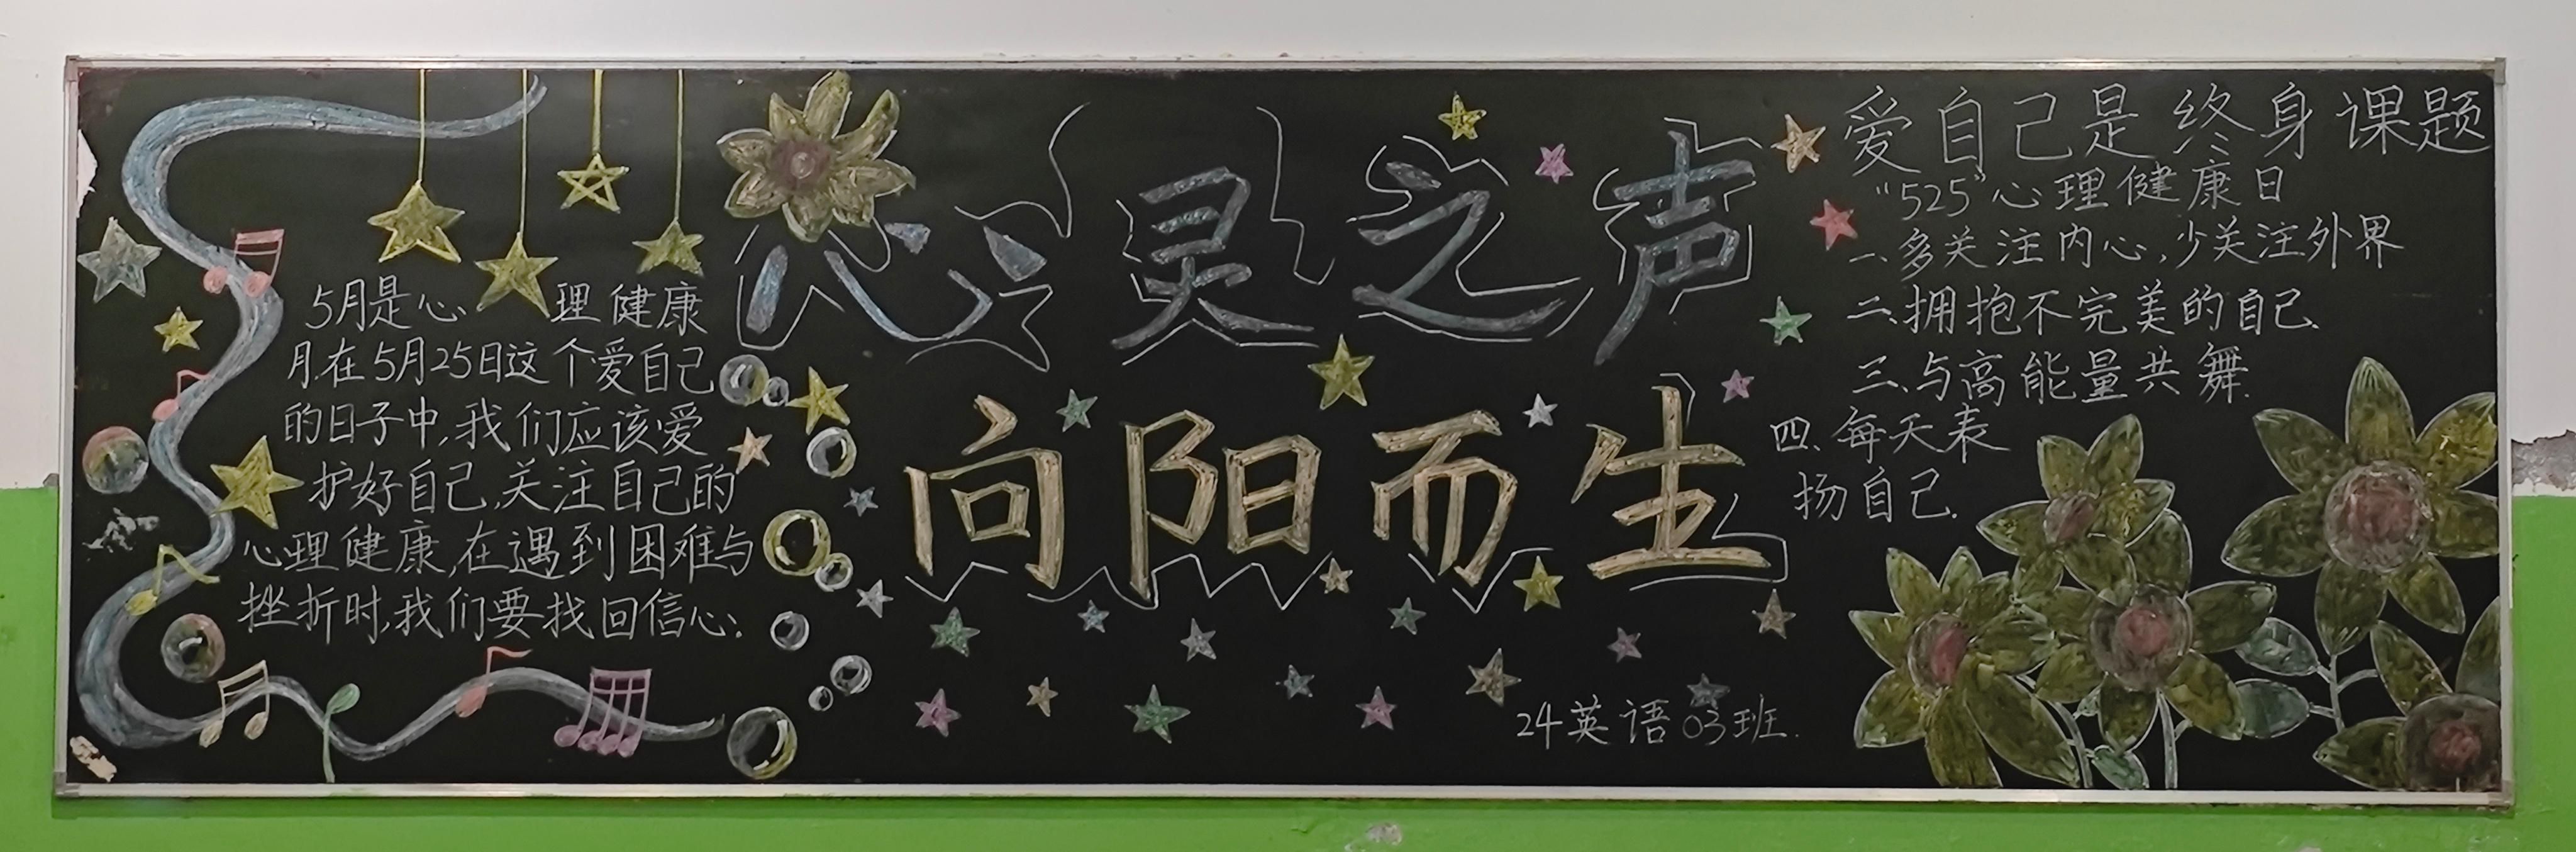 5月是心理健康
月.在5月25日这个爱自己
的日子中,我们应该爱
护好自己,关注自己的
心理健康,在遇到困难与
挫折时,我们要找回信心.
心灵之声
向阳而生
24英语03班.
爱自己是终身课题
"525"心理健康日
一、多关注内心,少关注外界
二、拥抱不完美的自己.
三、与高能量共舞.
四、每天表
扬自己.